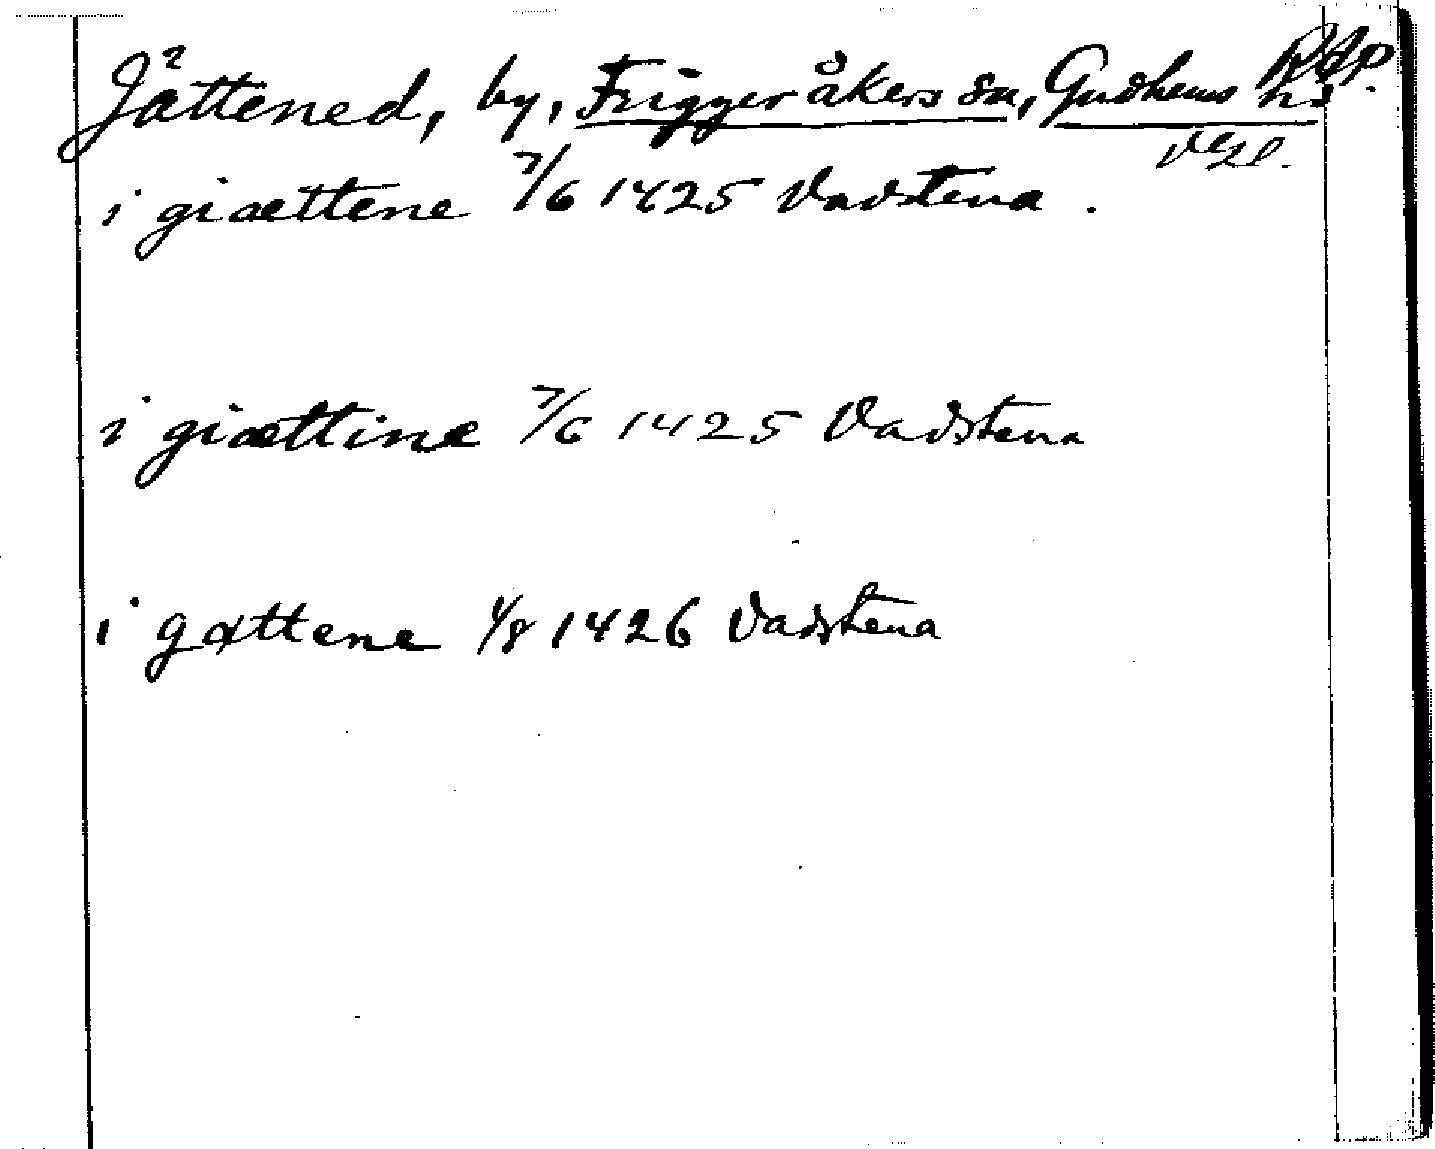 Jättened, by, Friggeråkers sn, Gudhems hd RAp.
Vgl.
i giættene 7/6 1425 Vadstena.
i giættine 7/6 1425 Vadstena
i gættene 1/8 1426 Vadstena